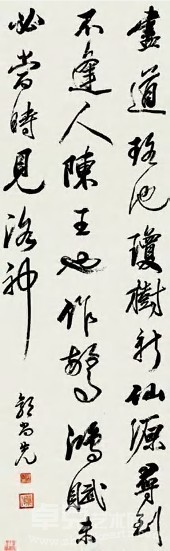 盡道瑤池瓊樹新仙源尋到
不逢人陳王也作驚鴻賦未
必當時見洛神
郭尚先